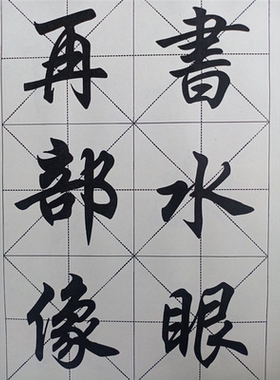 書水眼
再部像